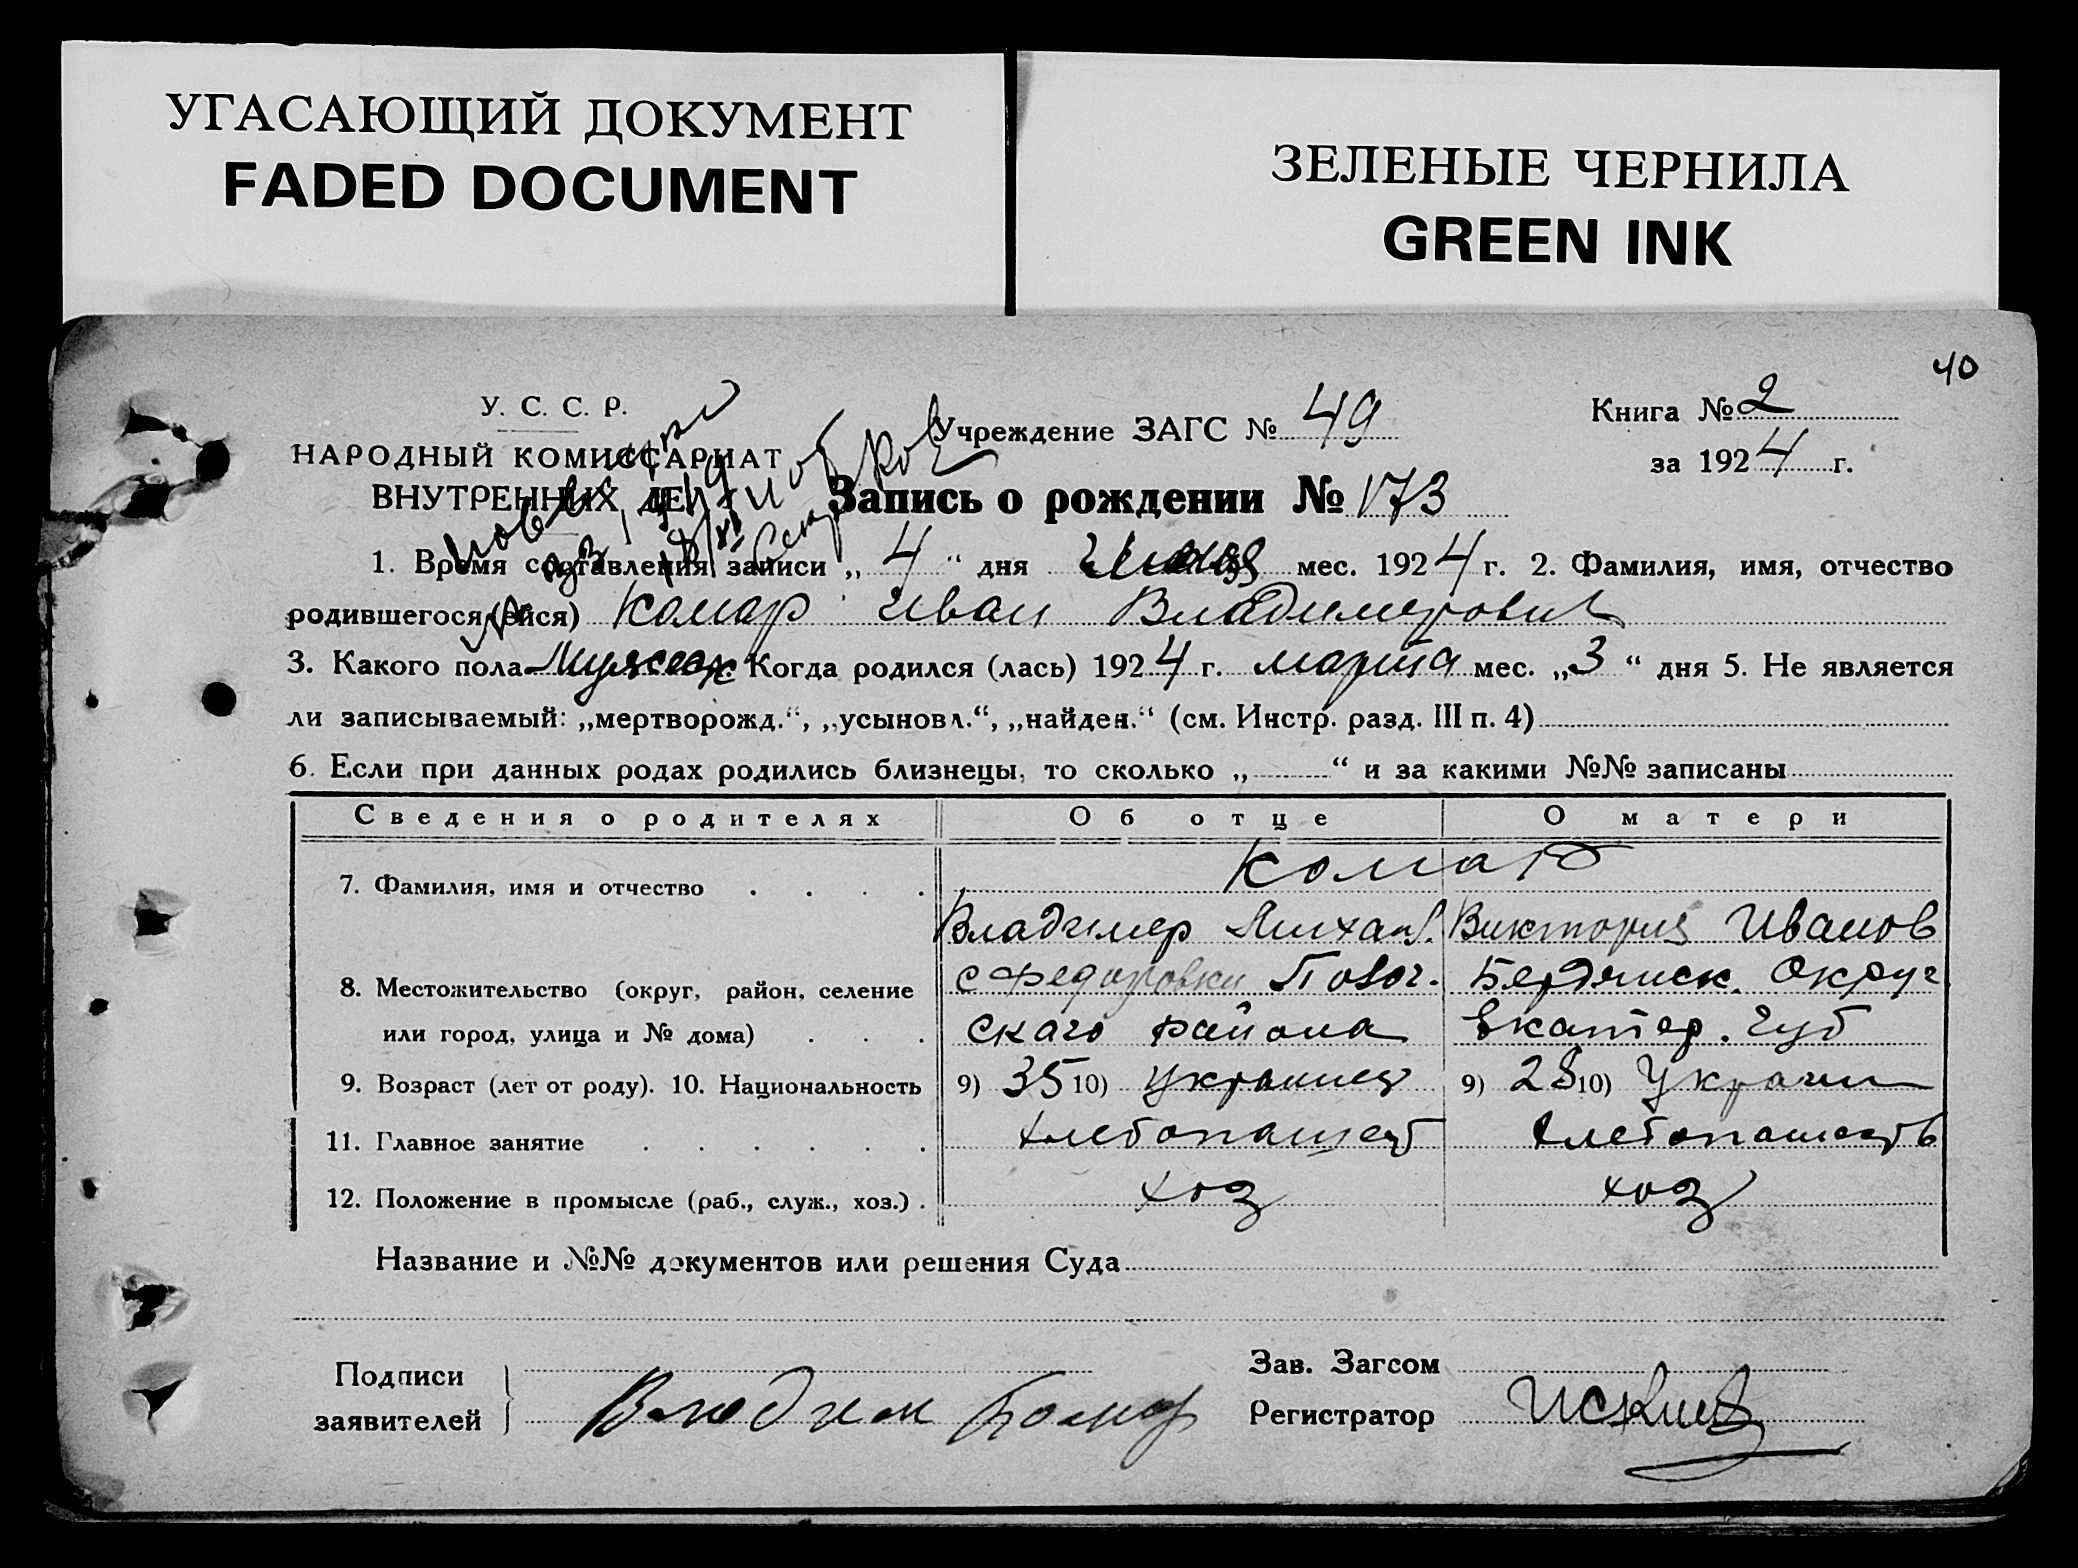 УГАСАЮЩИЙ ДОКУМЕНТ
FADED DOCUMENT
ЗЕЛЕНЫЕ ЧЕРНИЛА
GREEN INK
40
У. С. С. Р.
НАРОДНЫЙ КОМИССАРИАТ
ВНУТРЕННИХ ДЕЛ
Учреждение ЗАГС № 49
Книга № 2
за 1924 г.
Запись о рождении № 173
1. Время составления записи „ 4 “ дня мес. 1924 г. 2. Фамилия, имя, отчество
родившегося (ейся) Комар Иван Владимирович
3. Какого пола Мужск Когда родился (лась) 1924 г. марта мес. „3“ дня 5. Не является
ли записываемый: „мертворожд.“, „усыновл.“, „найден.“ (см. Инстр. разд. III п. 4)
6. Если при данных родах родились близнецы, то сколько „ “ и за какими №№ записаны
Сведения о родителях Об отце О матери
7. Фамилия, имя и отчество Комар
Владимер Михал. Виктория Иванов
8. Местожительство (округ, район, селение с Федоровки Бердянск. Округ
или город, улица и № дома) скаго района Екатер. Губ
9. Возраст (лет от роду). 10. Национальность 9) 35 10) украинец 9) 28 10) Украин
11. Главное занятие хлебопашест хлебопашеств
12. Положение в промысле (раб., служ., хоз.) хоз хоз
Название и №№ документов или решения Суда
Подписи
заявителей
Зав. Загсом
Регистратор